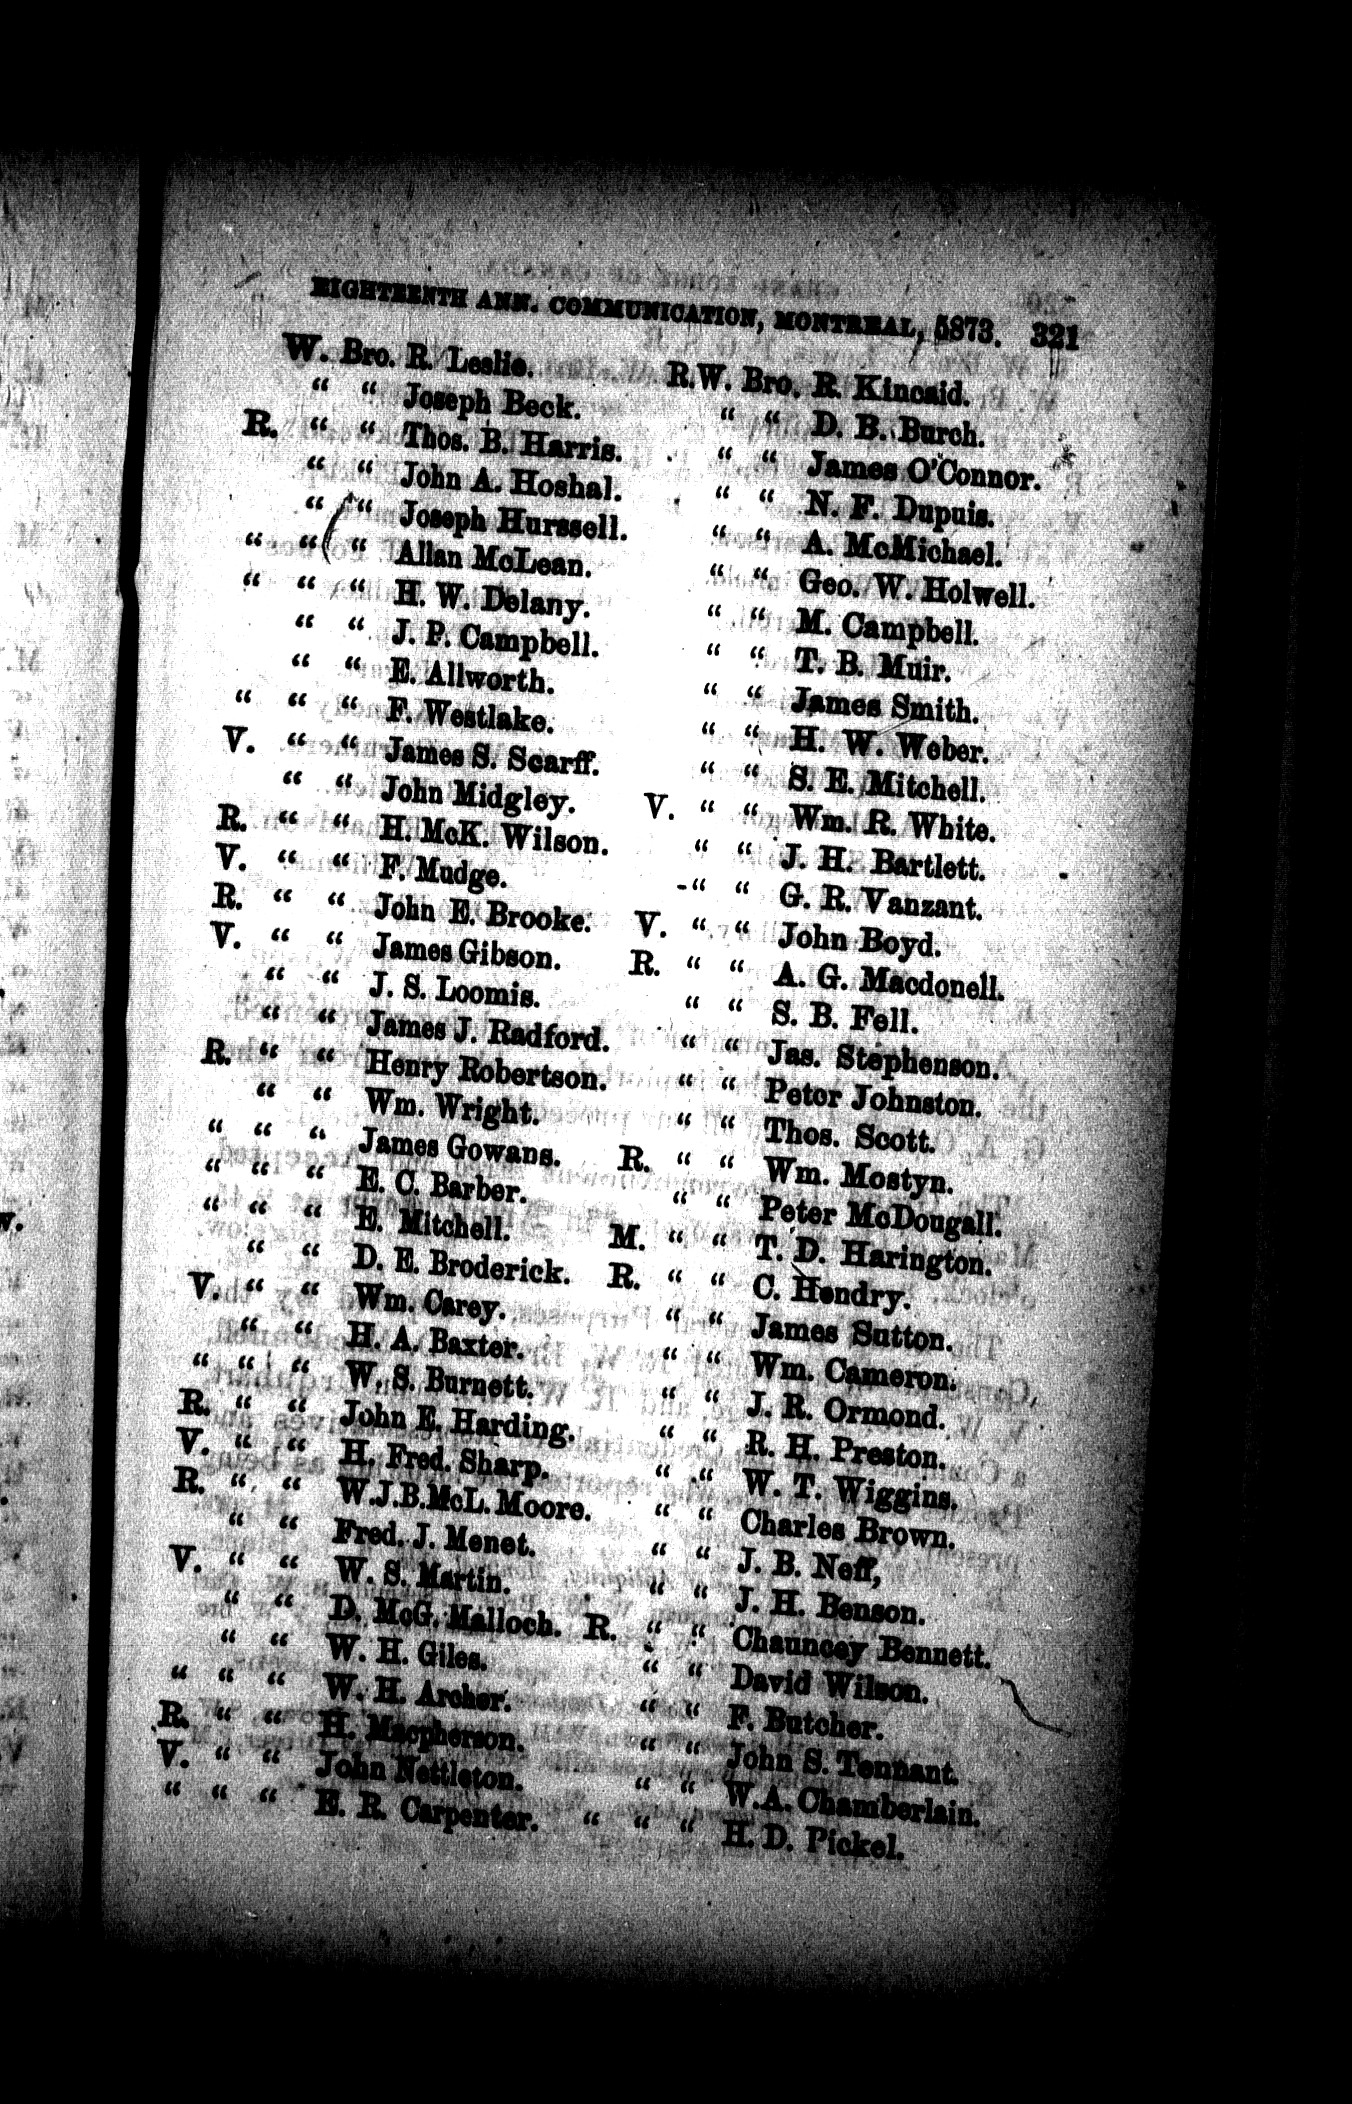 EIGHTEENTH ANN. COMMUNICATION, MONTREAL, 5873. 321
W. Bro. R. Leslie.
“ “ Joseph Beck.
R. “ “ Thos. B. Harris.
“ “ John A. Hoshal.
“ “ Joseph Hurssell.
“ “ “ Allan McLean.
“ “ “ H. W. Delany.
“ “ J. P. Campbell.
“ “ E. Allworth.
“ “ “ F. Westlake.
V. “ “ James S. Scarff.
“ “ John Midgley.
R. “ “ H. McK. Wilson.
V. “ “ F. Mudge.
R. “ “ John E. Brooke.
V. “ “ James Gibson.
“ “ J. S. Loomis.
“ “ James J. Radford.
R. “ “ Henry Robertson.
“ “ Wm. Wright.
“ “ “ James Gowans.
“ “ “ E. C. Barber.
“ “ “ E. Mitchell.
“ “ D. E. Broderick.
V. “ “ Wm. Carey.
“ “ H. A. Baxter.
“ “ “ W. S. Burnett.
R. “ “ John E. Harding.
V. “ “ H. Fred. Sharp.
R. “ “ W.J.B.McL. Moore.
“ “ Fred. J. Menet.
V. “ “ W. S. Martin.
“ “ D. McG. Malloch.
“ “ W. H. Giles.
“ “ “ W. H. Archer.
R. “ “ H. Macpherson.
V. “ “ John Nettleton.
“ “ “ E. R. Carpenter.
R.W. Bro. R. Kincaid.
“ “ D. B. Burch.
“ “ James O'Connor.
“ “ N. F. Dupuis.
“ “ A. McMichael.
“ “ Geo. W. Holwell.
“ “ M. Campbell.
“ “ T. B. Muir.
“ “ James Smith.
“ “ H. W. Weber.
“ “ S. E. Mitchell.
V. “ “ Wm. R. White.
“ “ J. H. Bartlett.
“ “ G. R. Vanzant.
V. “ “ John Boyd.
R. “ “ A. G. Macdonell.
“ “ S. B. Fell.
“ “ Jas. Stephenson.
“ “ Peter Johnston.
“ “ Thos. Scott.
R. “ “ Wm. Mostyn.
“ “ Peter McDougall.
M. “ “ T. D. Harington.
R. “ “ C. Hendry.
“ “ James Sutton.
“ “ Wm. Cameron.
“ “ J. R. Ormond.
“ “ R. H. Preston.
“ “ W. T. Wiggins.
“ “ Charles Brown.
“ “ J. B. Neff,
“ “ J. H. Benson.
R. “ “ Chauncey Bennett.
“ “ David Wilson.
“ “ F. Butcher.
“ “ John S. Tennant.
“ “ W.A. Chamberlain.
“ “ “ H. D. Pickel.